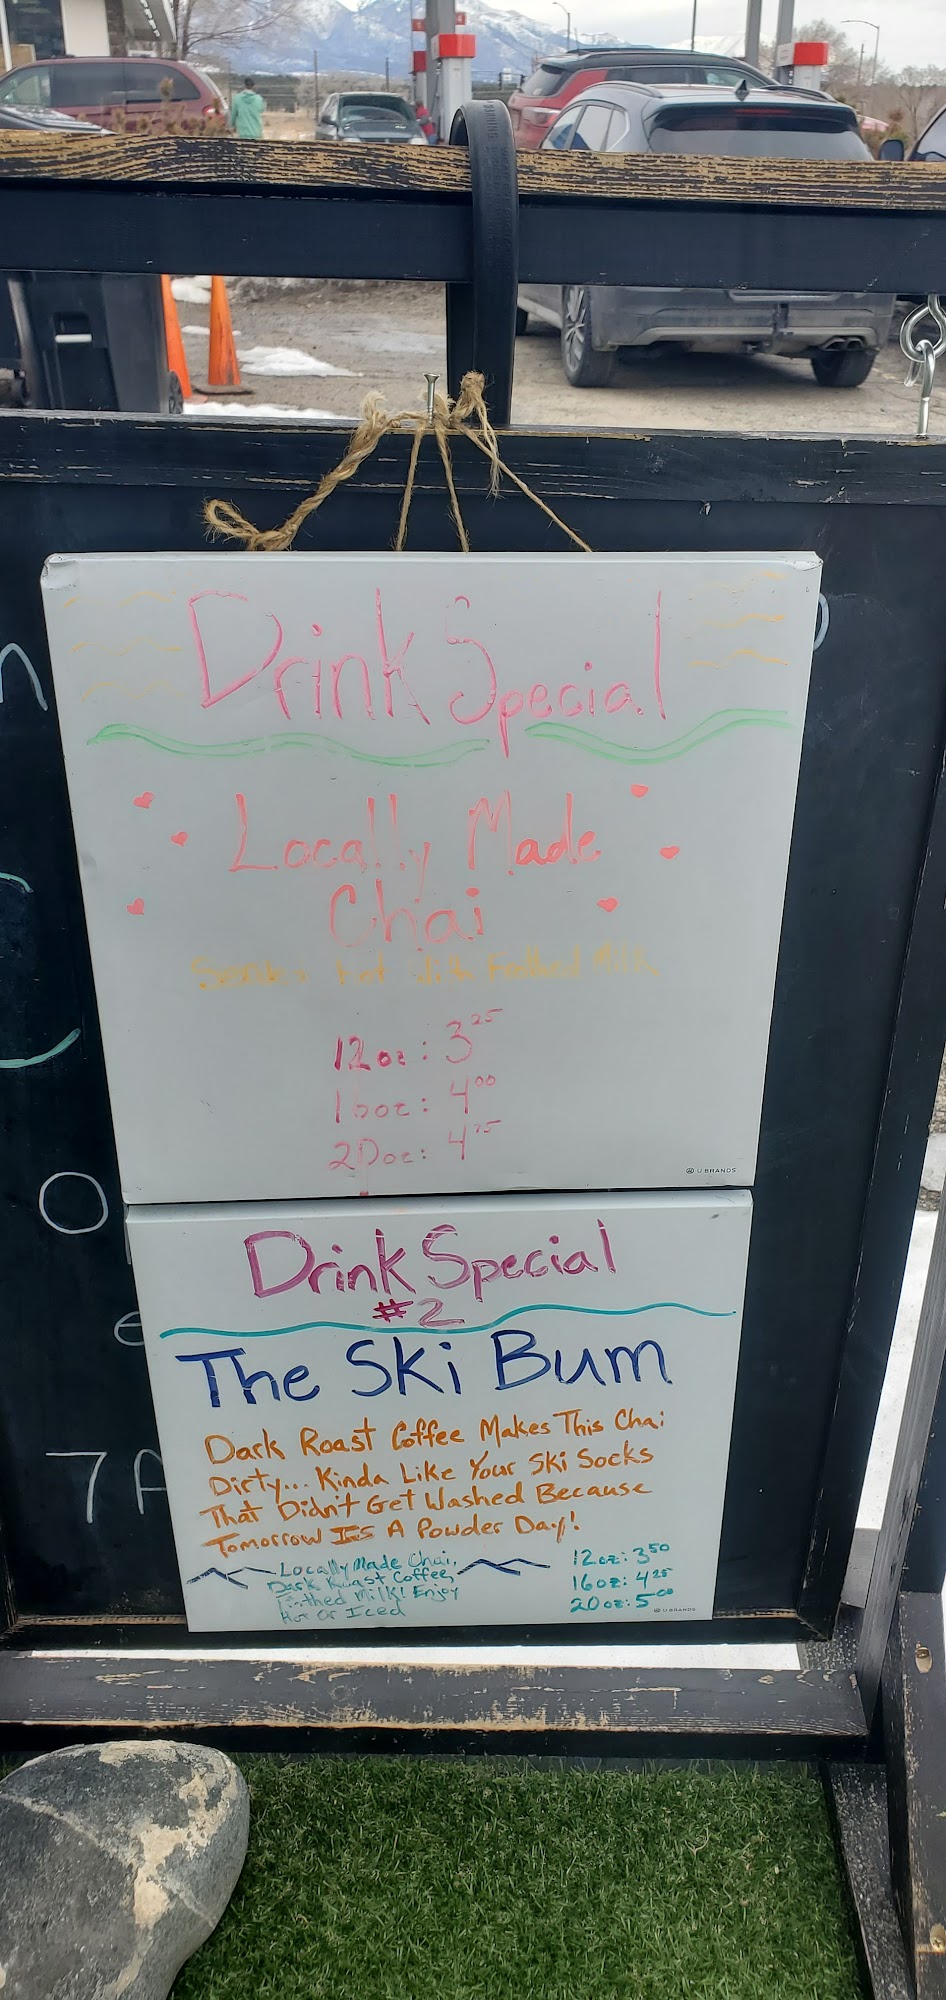 Drink Special
Locally Made
Chai
Hot with Frothed Milk
12oz: 3²⁵
16oz: 4⁰⁰
20oz: 4⁷⁵
U BRANDS
Drink Special
#2
The Ski Bum
Dark Roast Coffee Makes This Chai
Dirty... Kinda Like Your Ski Socks
That Didn't Get Washed Because
Tomorrow Is A Powder Day!
Locally Made Chai,
Dark Roast Coffee,
Frothed Milk! Enjoy
Hot Or Iced
12oz: 3⁵⁰
16oz: 4²⁵
20oz: 5⁰⁰
U BRANDS
O
e
7A